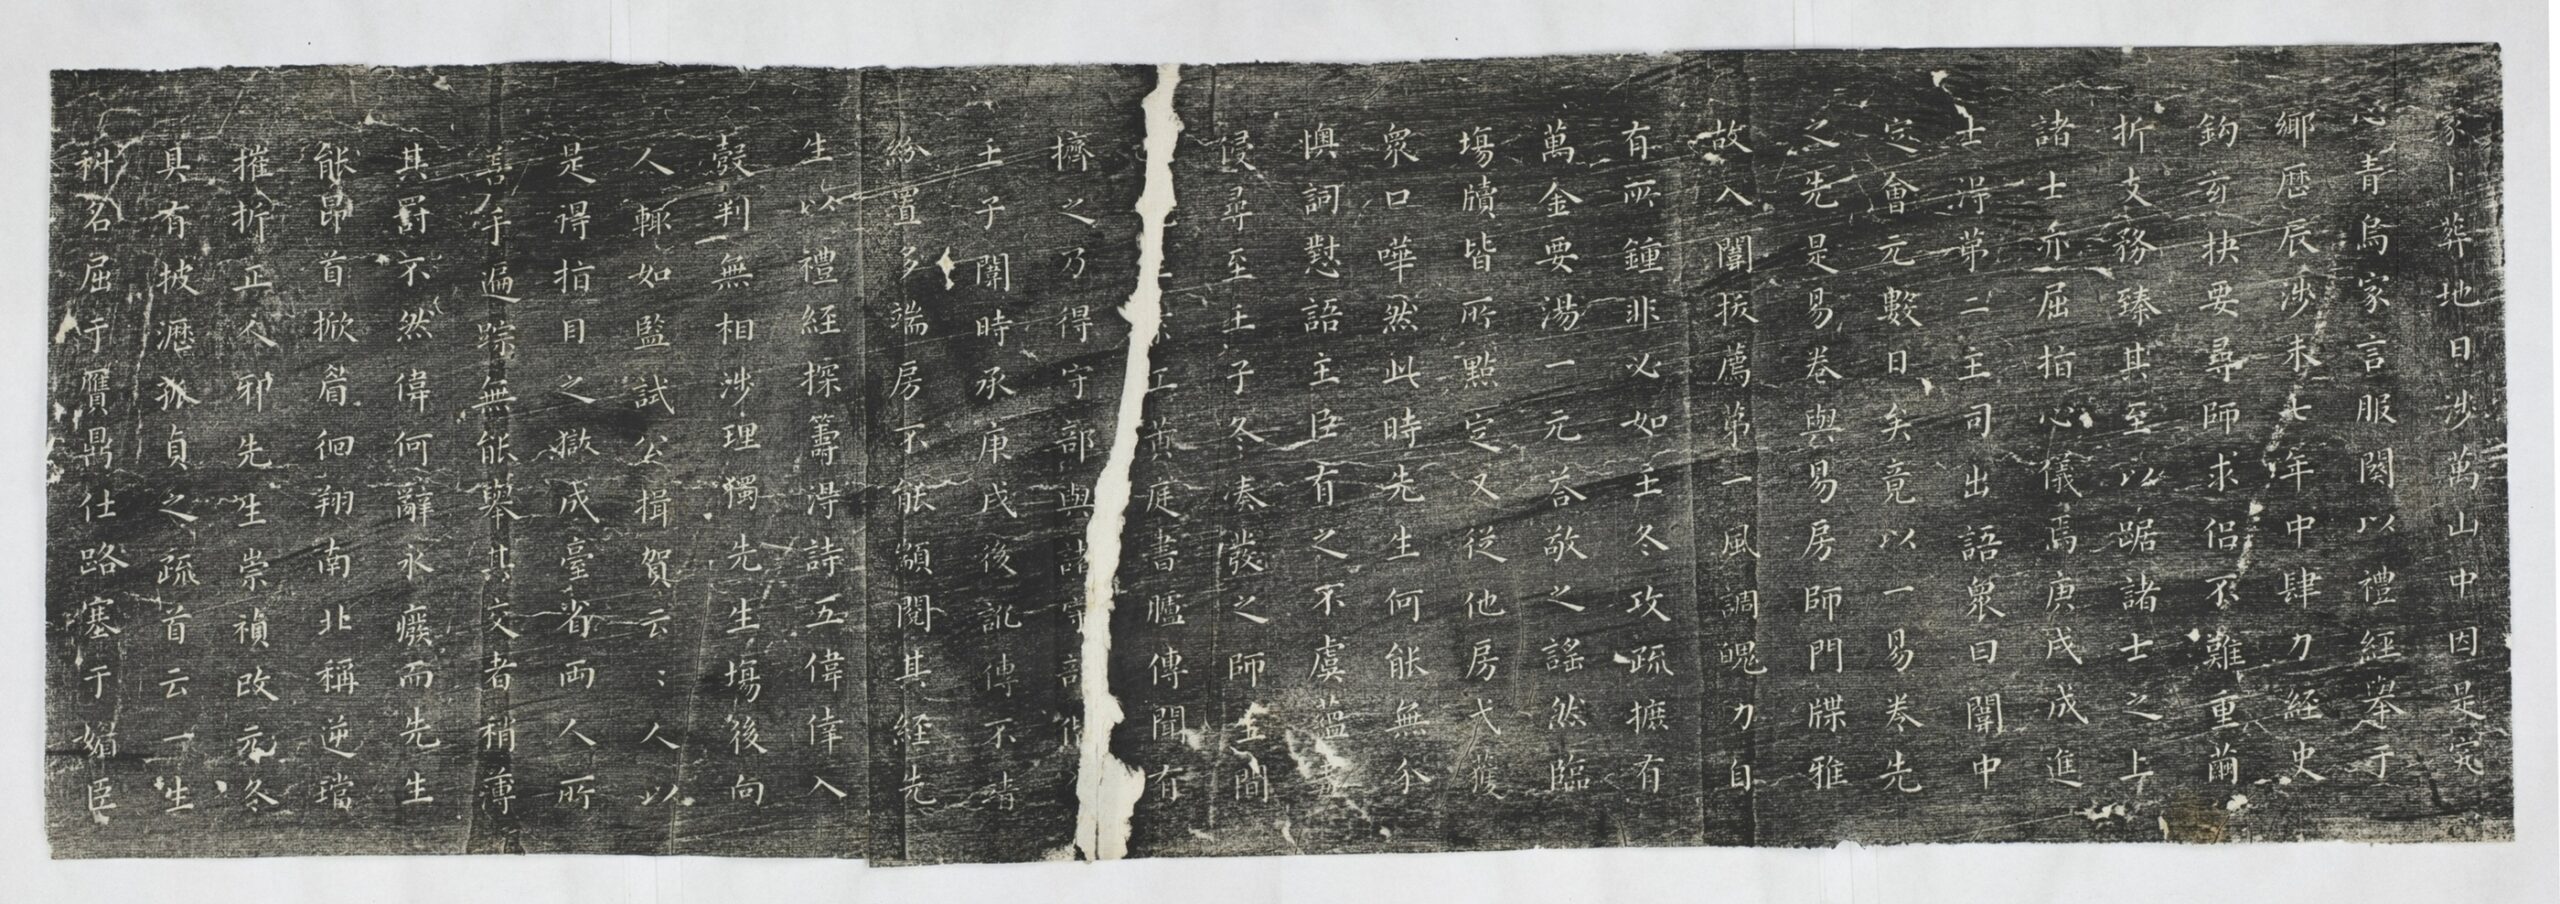 家卜葬地日涉萬山中因是究
心青烏家言服闋以禮經舉于
鄉歷辰涉未七年中肆力經史
鈎玄抉要尋師求侶不難重繭
折支務臻其至以踞諸士之上
諸士亦屈指心儀焉庚戌成進
士淂苐二主司出語衆曰闈中
定會元數日矣竟以一易卷先
之先是易卷與易房師門牒雅
故入闈拔薦第一風調魄力自
有所鍾非必如壬冬攻疏摭有
萬金要湯一元荅敬之謠然臨
塲牘皆所點定又從他房弋獲
衆口嘩然此時先生何能無介
懊詞懟語主臣有之不虞蘊
侵尋至壬子冬凑發之師生間
工黃庭書臚傳聞有
擠之乃得守部與諸守部
壬子闈時承庚戌後訛傳不靖
紛置多端房不能顓閱其經先
生以禮經探籌淂詩五偉偉入
彀判無相涉理獨先生塲後向
人輒如監試公揖賀云：人以
是得指目之獄成臺省両人所
善手遍踪無能舉其交者稍薄
其罸不然偉何辭永癈而先生
能昂首掀眉徊翔南北稱逆璫
摧折正人邪先生崇禎改元冬
具有披瀝孤貞之疏首云一生
科名屈于贋鼎仕路塞于媚臣